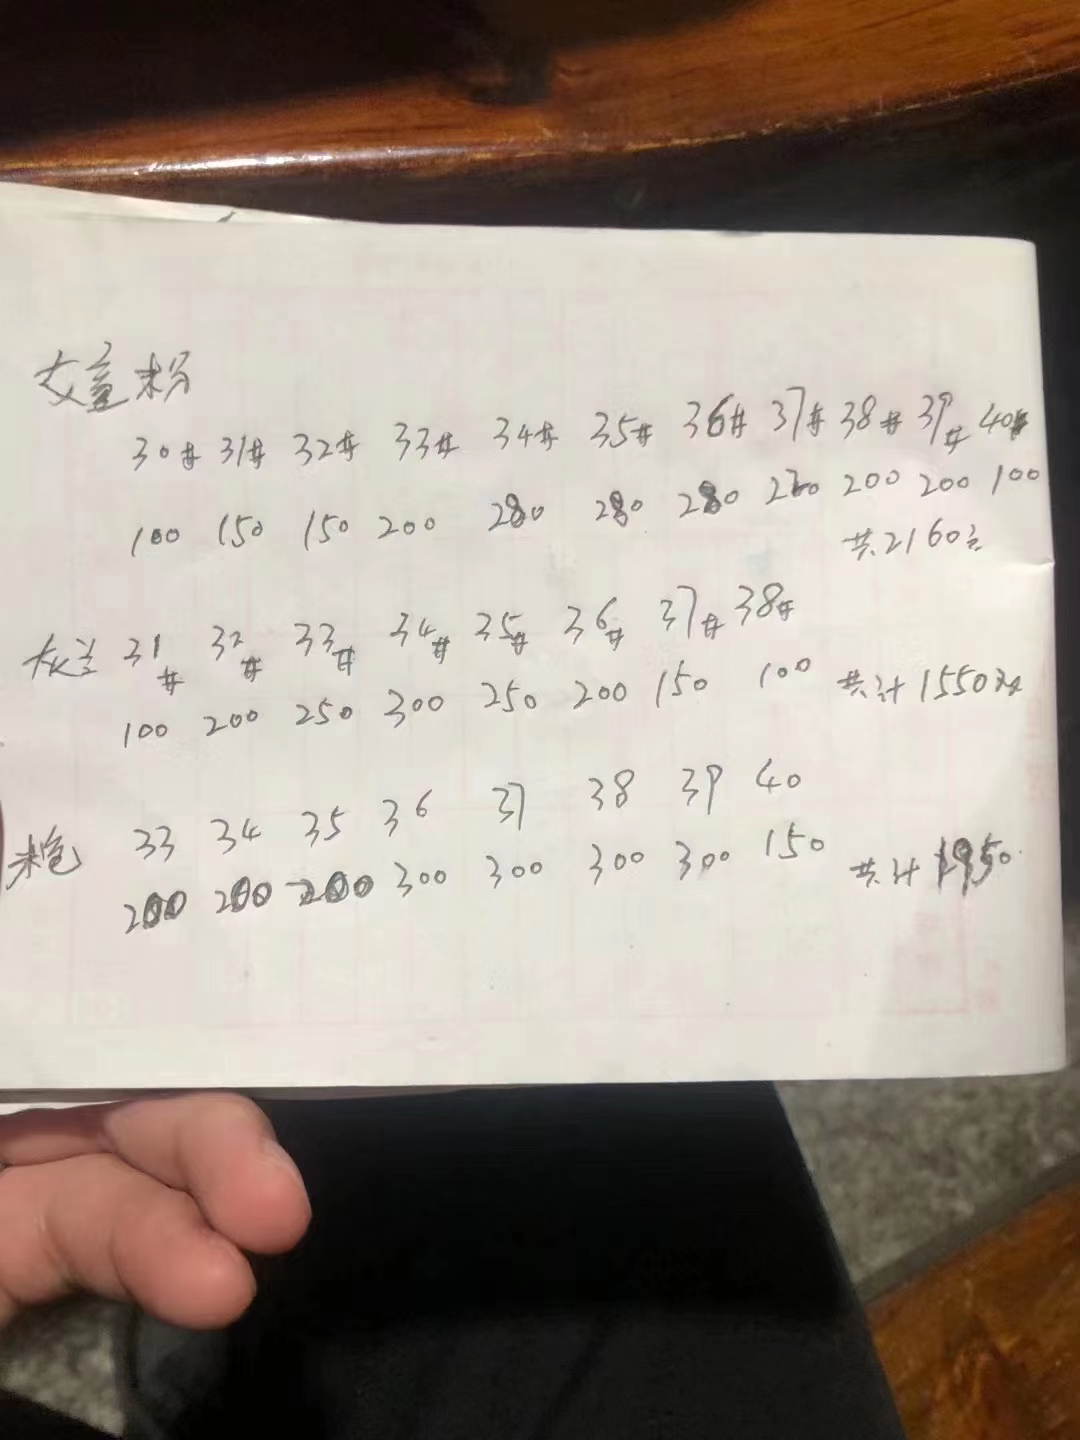 女童粉
30# 31# 32# 33# 34# 35# 36# 37# 38# 39# 40#
100 150 150 200 280 280 280 220 200 200 100
共2160双
灰兰 31# 32# 33# 34# 35# 36# 37# 38#
100 200 250 300 250 200 150 100 共计1550双
米色 33 34 35 36 37 38 39 40
200 200 200 300 300 300 300 150 共计1950